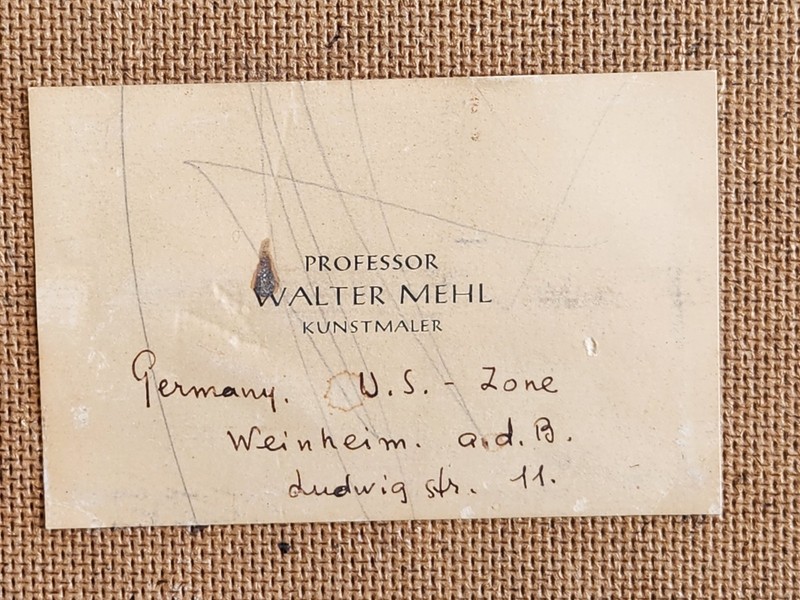 PROFESSOR
WALTER MEHL
KUNSTMALER
Germany. U.S. - Zone
Weinheim. a.d.B.
Ludwig str. 11.